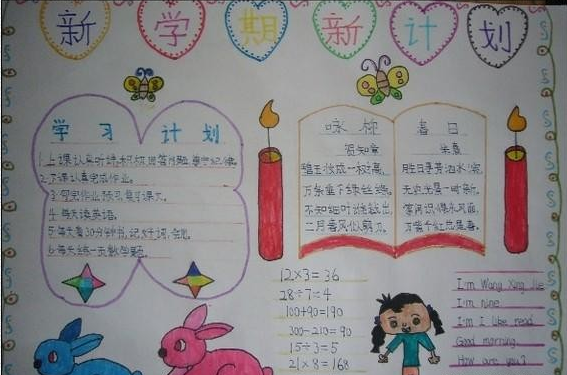 新学期新计划
学习计划
1.上课认真听讲,积极回答问题,遵守纪律.
2.下课认真完成作业。
3.写完作业预习,复习课文。
4.每天读英语。
5.每天看30分钟书,记好词,好句.
6.每天练一页数学题.
咏柳
贺知章
碧玉妆成一树高,
万条垂下绿丝绦,
不知细叶谁裁出,
二月春风似剪刀.
春日
朱熹
胜日寻芳泗水滨,
无边光景一时新,
等闲识得东风面,
万紫千红总是春.
12×3=36
28÷7=4
100+90=190
300-210=90
15÷3=5
21×8=168
I'm Wang Xing Jie
I'm nine.
I'm I like read
Good morning.
How are you?